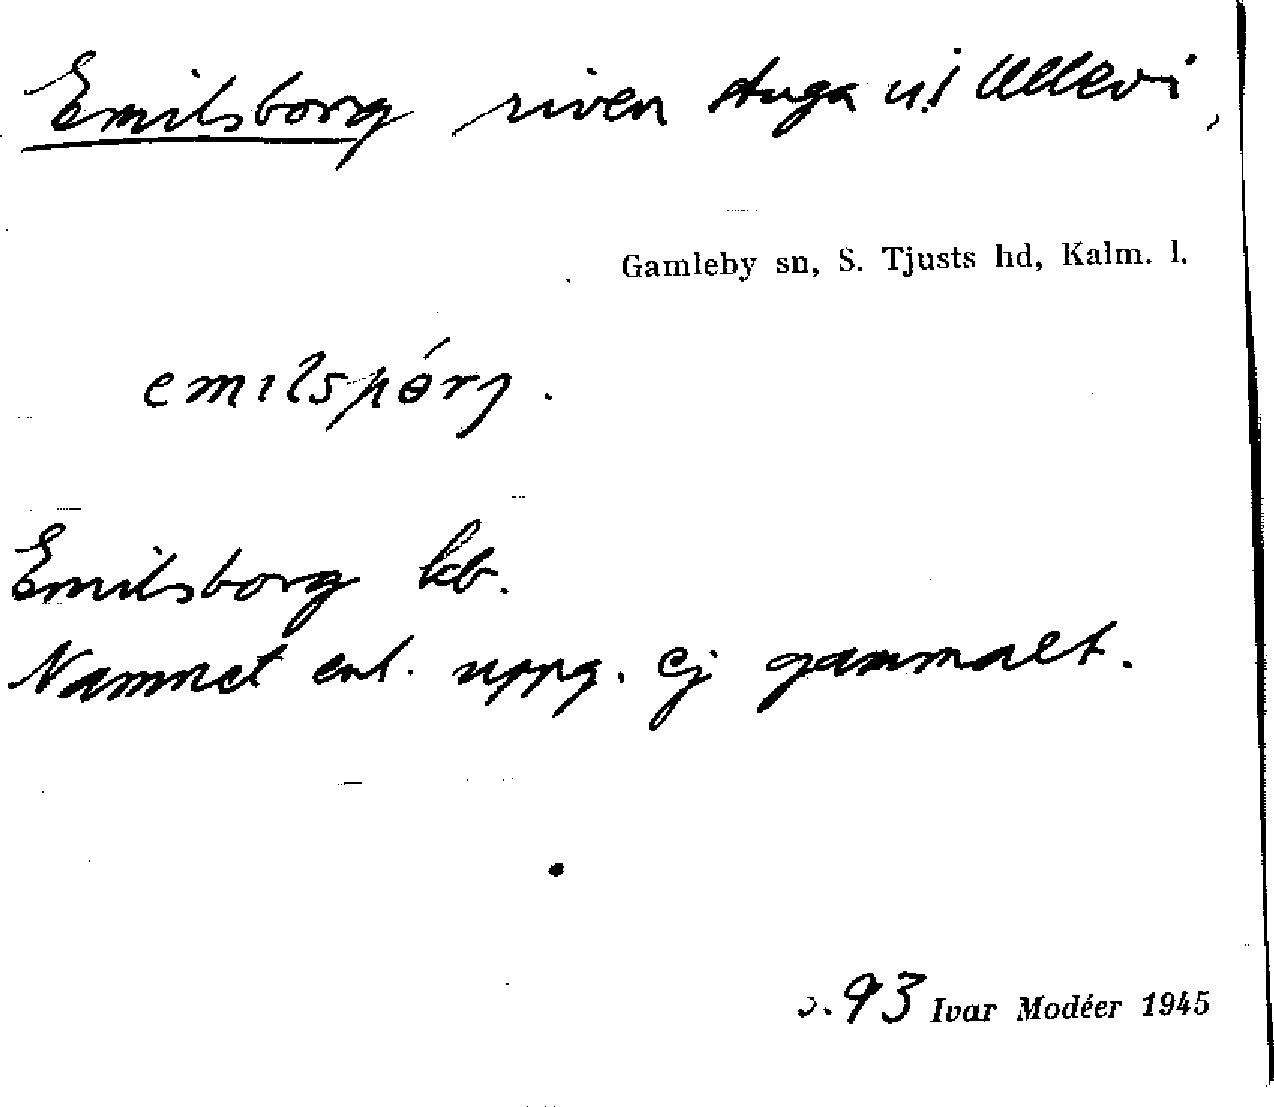 Emilsborg riven stuga u. Ullevi,
Gamleby sn, S. Tjusts hd, Kalm. l.
emilspórj.
Emilsborg kb.
Namnet enl. uppg. ej gammalt.
s. 93 Ivar Modéer 1945